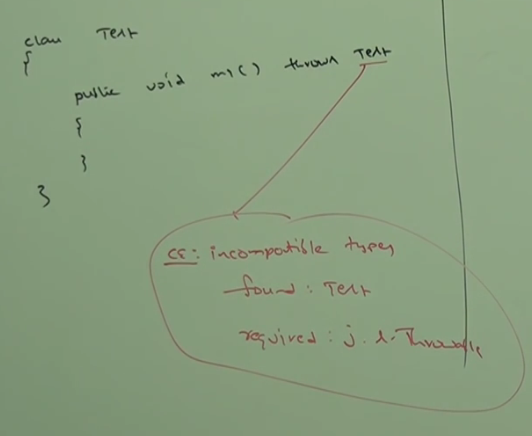 class Test
{
public void m1() throws Test
{
}
}
CE: incompatible types
found: Test
required: j.l.Throwable